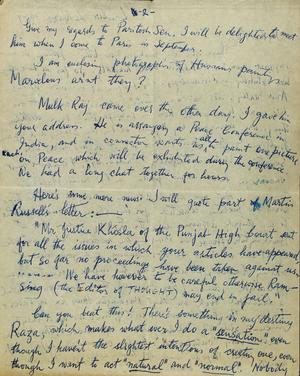 -2-
Give my regards to Paritosh Sen. I will be delighted to meet
him when I come to Paris in September.
I am enclosing photographs of Hussain's paint
Marvelous arn't they?
Mulk Raj came over the other day. I gave him
your address. He is arranging a Peace Conference in
India, and in connection wants us all paint one picture
each on Peace which will be exhibited during the conference
We had a long chat together for hours.
Here's some more news. I will quote part of Martin
Russell's letter: —
"Mr. Justice Khosla of the Punjab High Court sent
for all the issues in which your articles have appeared
but so far no proceedings have been taken against us.
........ We have however to be careful otherwise Ram-
Singh (the Editor of THOUGHT) may end in jail."
Can you beat this! There's something in my destiny
Raza, which makes what ever I do a "sensation" even
though I haven't the slightest intentions of creating one, even
though I want to act "natural" and "normal". Nobody